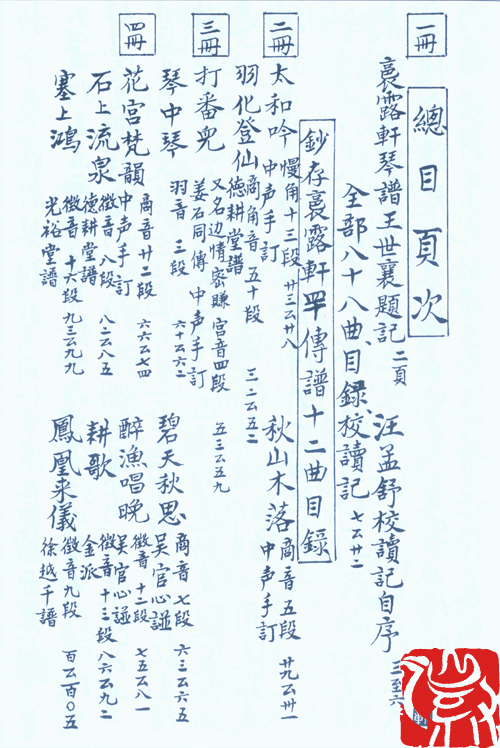 一冊
總目頁次
裛露軒琴譜王世襄題記 二頁
汪孟舒校讀記自序 三至六
全部八十八曲、目錄、校讀記 七至卅二
鈔存裛露軒罕傳譜十二曲目錄
二冊
太和吟 慢角十三段 中声手訂 廿三至廿八
秋山木落 商音五段 中声手訂 廿九至卅一
羽化登仙 商角音 五十段 德耕堂譜 三二至五二
三冊
打番兒 又名边情密賺 宮音四段 姜石同傳 中声手訂 五三至五九
琴中琴 羽音 三段 六十至六二
碧天秋思 商音七段 吴官心諩 六三至六五
四冊
花宮梵韻 商音廿二段 中声手訂 六六至七四
醉漁唱晚 徵音十二段 吴官心諩 七五至八一
石上流泉 徵音八段 德耕堂譜 八二至八五
耕歌 徵音十三段 金派 八六至九二
塞上鴻 徵音十六段 光裕堂譜 九三至九九
鳳凰来儀 徵音九段 徐越千譜 百至百〇五